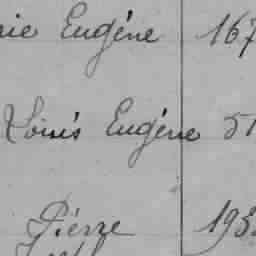 rie Eugéne 167
Louis Eugéne 51
Piérre 193